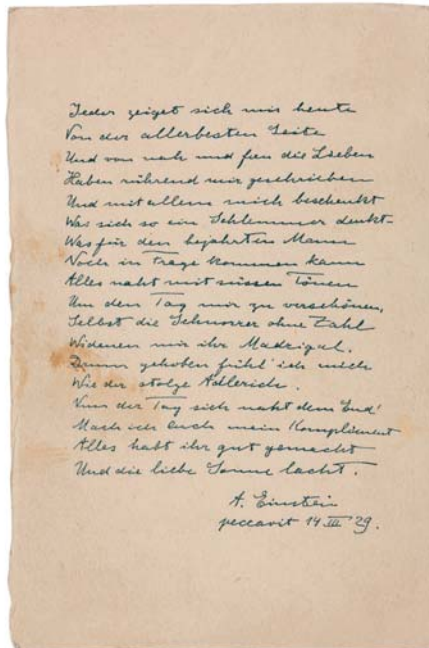 Jeder zeiget sich mir heute
Von der allerbesten Seite
Und von nah und fern die Lieben
Haben rührend mir geschrieben
Und mit allem mich beschenkt
Was sich so ein Schlemmer denkt
Was für den bejahrten Mann
Noch in Frage kommen kann
Alles naht mit süssen Tönen
Um den Tag mir zu verschönen,
Selbst die Schnorrer ohne Zahl
Widmen mir ihr Madrigal.
Drum gehoben fühl' ich mich
Wie der stolze Adlerich.
Nun der Tag sich naht dem End'
Mach ich euch mein Kompliment
Alles habt ihr gut gemacht
Und die liebe Sonne lacht.
A. Einstein
peccavit 14 III 29.